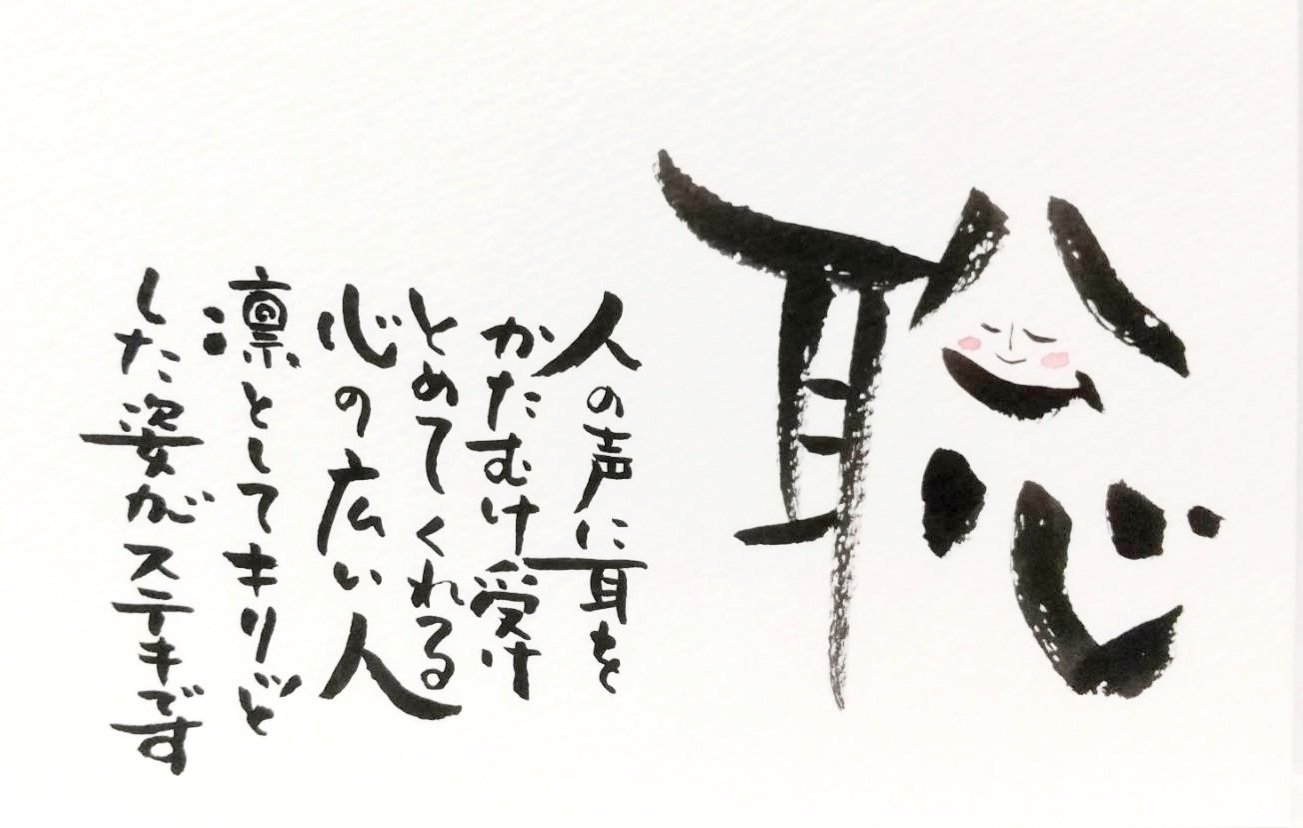 聡
人の声に耳を
かたむけ受け
とめてくれる
心の広い人
凛としてキリッと
した姿がステキです